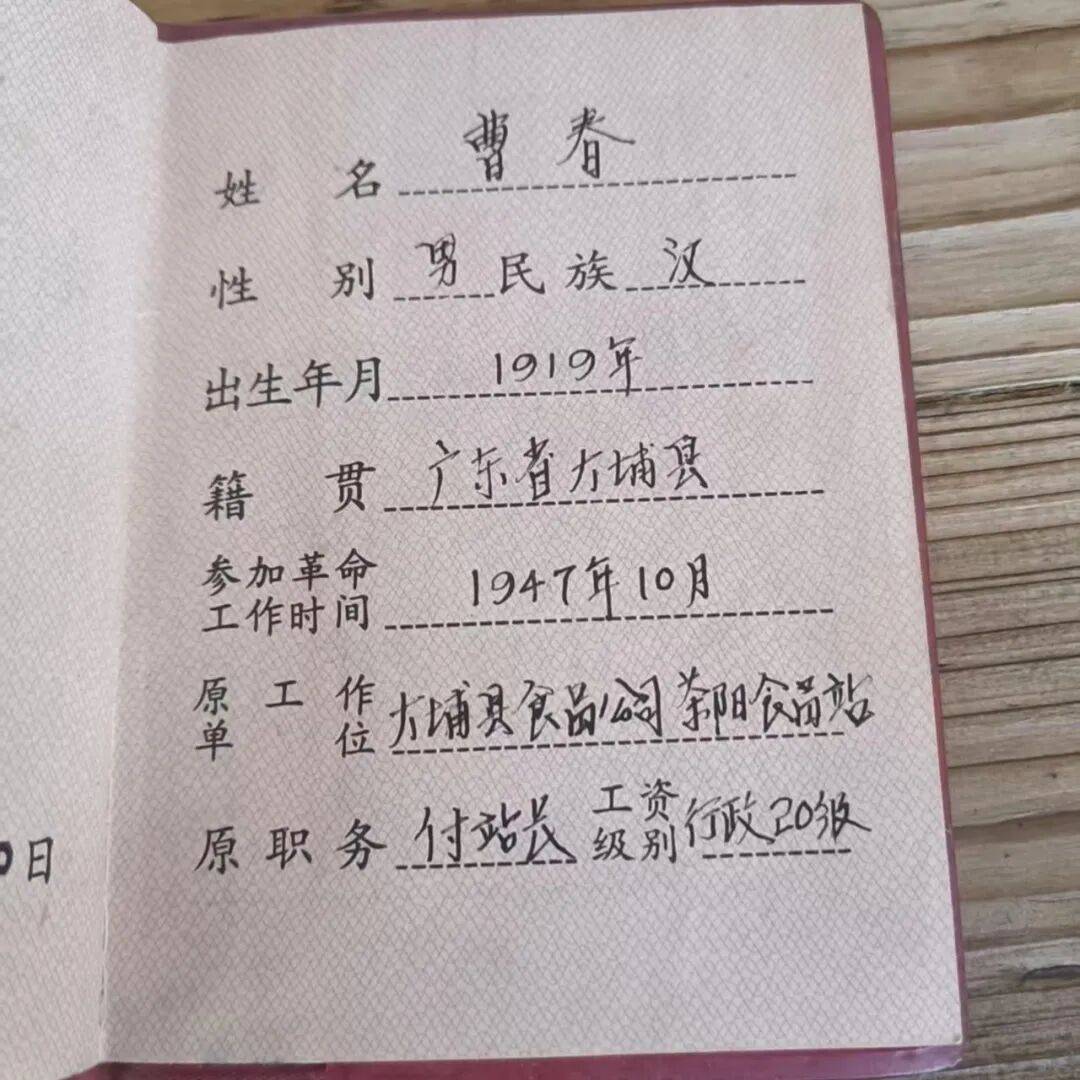 姓名 曹春
性别 男 民族 汉
出生年月 1919年
籍贯 广东省大埔县
参加革命
工作时间 1947年10月
原工作
单位 大埔县食品公司茶阳食品站
原职务 付站长 工资级别 行政20级
日